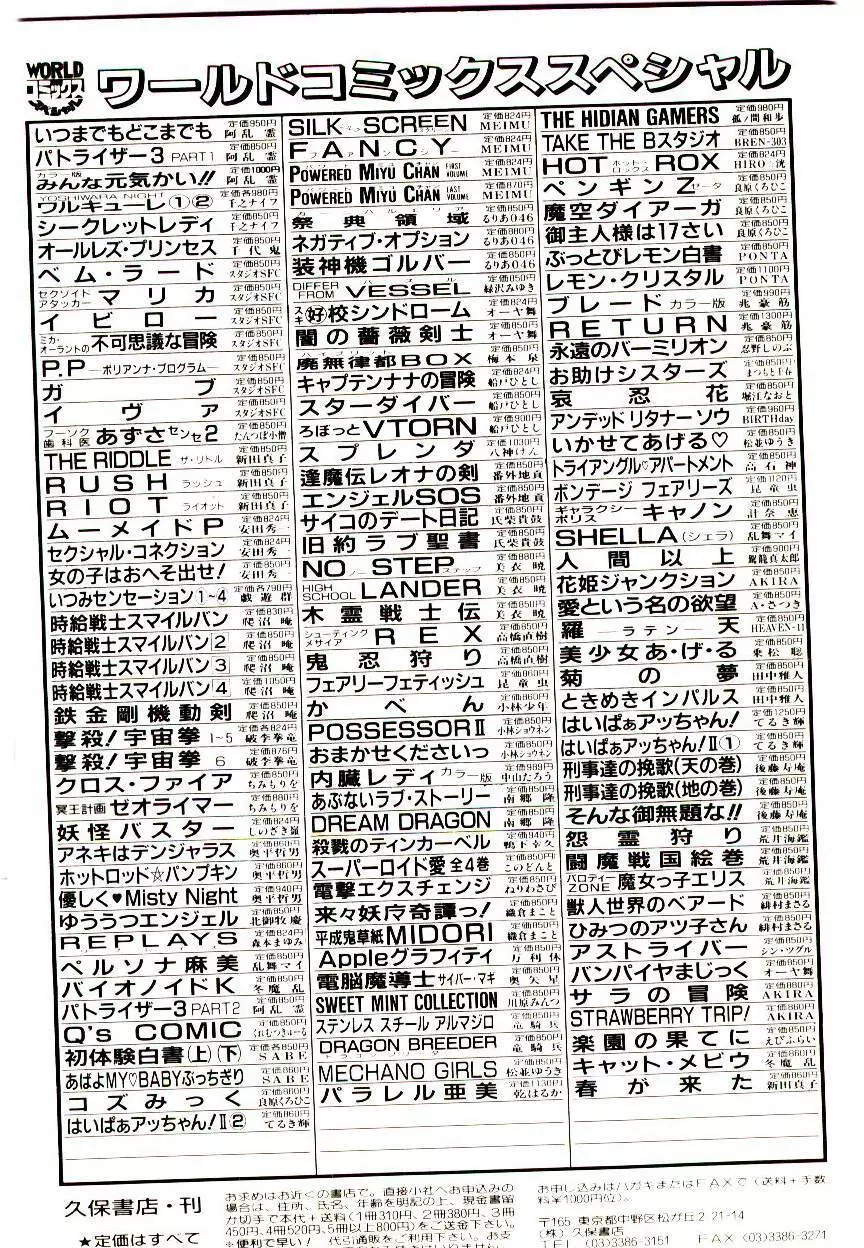 WORLD
コミックス
スペシャル
ワールドコミックススペシャル
いつまでもどこまでも 定価950円 阿乱霊
パトライザー3 PART1 定価850円 阿乱霊
カラー版 みんな元気かい!! 定価1000円 阿乱霊
YOSHIWARA NIGHT ワルキューレ①② 定価各980円 千之ナイフ
シークレットレディ 定価850円 千之ナイフ
オールレズ・プリンセス 定価850円 千代鬼
ベム・ラード 定価850円 スタジオSFC
セクソイドアタッカー マリカ 定価850円 スタジオSFC
イビロー 定価850円 スタジオSFC
ミカ・オーラントの不可思議な冒険 定価850円 スタジオSFC
P.P ―ポリアンナ・プログラム― 定価850円 スタジオSFC
ガブ 定価850円 スタジオSFC
イヴァ 定価850円 スタジオSFC
フーゾク歯科医 あずさセンセ2 定価850円 たんつぼ小僧
THE RIDDLE ザ・リドル 定価850円 新田真子
RUSH ラッシュ 定価850円 新田真子
RIOT ライオット 定価850円 新田真子
ムーメイドP 定価824円 安田秀一
セクシャル・コネクション 定価824円 安田秀一
女の子はおへそ出せ! 定価850円 安田秀一
いつみセンセーション1~4 定価各790円 戯遊群
時給戦士スマイルバン 定価830円 爬沼庵
時給戦士スマイルバン2 定価850円 爬沼庵
時給戦士スマイルバン3 定価850円 爬沼庵
時給戦士スマイルバン4 定価1050円 爬沼庵
鉄金剛機動剣 定価850円 爬沼庵
撃殺!宇宙拳 1~5 定価各824円 破李拳竜
撃殺!宇宙拳 6 定価876円 破李拳竜
クロス・ファイア 定価850円 ちみもりを
冥王計画ゼオライマー 定価880円 ちみもりを
妖怪バスター 定価824円 しのざき嶺
アネキはデンジャラス 定価860円 奥平哲男
ホットロッド☆パンプキン 定価860円 奥平哲男
優しく♥Misty Night 定価940円 奥平哲男
ゆううつエンジェル 定価850円 北御牧慶
REPLAYS 定価824円 森本まゆみ
ペルソナ麻美 定価850円 乱舞マイ
バイオノイドK 定価850円 冬魔乱
パトライザー3 PART2 定価850円 阿乱霊
Q's COMIC 定価850円 くれむつきゅーる
初体験白書(上)(下) 定価各850円 SABE
あばよMY♡BABYぶっちぎり 定価860円 SABE
コズみっく 定価860円 良原くろひこ
はいぱぁアッちゃん!Ⅱ② 定価860円 てるき輝
SILK SCREEN 定価824円 MEIMU
FANCY 定価824円 MEIMU
POWERED MIYU CHAN FIRST VOLUME 定価824円 MEIMU
POWERED MIYU CHAN LAST VOLUME 定価870円 MEIMU
祭典領域 定価850円 るりあ046
ネガティブ・オプション 定価880円 るりあ046
装神機ゴルバー 定価850円 るりあ046
DIFFER FROM VESSEL 定価850円 緑沢みゆき
スキ(好)校シンドローム 定価824円 オーヤ舞
闇の薔薇剣士 定価850円 オーヤ舞
廃無律都BOX 定価850円 梅本泉
キャプテンナナの冒険 定価824円 船戸ひとし
スターダイバー 定価850円 船戸ひとし
ろぼっとVTORN 定価900円 船戸ひとし
スプレンダ 定価1030円 八神けん
逢魔伝レオナの剣 定価850円 番外地貢
エンジェルSOS 定価850円 番外地貢
サイコのデート日記 定価850円 氏柴貴鼓
旧約ラブ聖書 定価850円 氏柴貴鼓
NO STEP 定価880円 美衣暁
HIGH SCHOOL LANDER 定価850円 美衣暁
木霊戦士伝 定価850円 美衣暁
シューティングメサイア REX 定価850円 高橋直樹
鬼忍狩り 定価850円 高橋直樹
フェアリーフェティッシュ 定価860円 昆童虫
かべん 定価860円 小林少年
POSSESSORⅡ 定価850円 小林ショウネン
おまかせくださいっ 定価850円 小林ショウネン
内臓レディ カラー版 定価989円 中山たろう
あぶないラブ・ストーリー 定価850円 南郷隆
DREAM DRAGON 定価850円 南郷隆
殺戮のティンカーベル 定価940円 鴨下幸久
スーパーロイド愛 全4巻 定価860円 このどんと
電撃エクスチェンジ 定価850円 ねりわさび
来々妖斥奇譚っ! 定価850円 織倉まこと
平成鬼草紙MIDORI 定価850円 織倉まこと
Appleグラフィティ 定価850円 万利休
電脳魔導士 サイバー・マギ 定価850円 奥矢星
SWEET MINT COLLECTION 定価850円 川原みんつ
ステンレス スチール アルマジロ 定価850円 竜騎兵
DRAGON BREEDER 定価850円 竜騎兵
MECHANO GIRLS 定価860円 松並ゆうき
パラレル亜美 定価1130円 乾はるか
THE HIDIAN GAMERS 定価980円 狐ノ間和歩
TAKE THE Bスタジオ 定価850円 BREN-303
HOT ROX ホットロックス 定価824円 HIRO 洸
ペンギンZ ゼータ 定価850円 良原くろひこ
魔空ダイアーガ 定価850円 良原くろひこ
御主人様は17さい 定価850円 良原くろひこ
ぶっとびレモン白書 定価850円 PONTA
レモン・クリスタル 定価1100円 PONTA
ブレード カラー版 定価990円 兆豪筋
RETURN 定価1300円 兆豪筋
永遠のバーミリオン 定価850円 忍野しのぶ
お助けシスターズ 定価850円 まつもと千春
哀忍花 定価850円 堀江なおと
アンデッドリタナーソウ 定価960円 BIRTHday
いかせてあげる♡ 定価850円 松並ゆうき
トライアングル♡アパートメント 定価850円 高石神
ボンデージ フェアリーズ 定価1120円 昆童虫
ギャラクシーポリス キャノン 定価850円 計奈恵
SHELLA(シェラ) 定価850円 乱舞マイ
人間以上 定価900円 駕籠真太郎
花姫ジャンクション 定価850円 AKIRA
愛という名の欲望 定価850円 A・さつき
羅天 ラテン 定価850円 HEAVEN-11
美少女あ・げ・る 定価850円 乗松聡
菊の夢 定価850円 田中雅人
ときめきインパルス 定価850円 田中雅人
はいぱぁアッちゃん! 定価1250円 てるき輝
はいぱぁアッちゃん!Ⅱ① 定価850円 てるき輝
刑事達の挽歌(天の巻) 定価850円 後藤寿庵
刑事達の挽歌(地の巻) 定価850円 後藤寿庵
そんな御無題な!! 定価850円 後藤寿庵
怨霊狩り 定価850円 荒井海鑑
闘魔戦国絵巻 定価850円 荒井海鑑
パロティーZONE 魔女っ子エリス 定価850円 荒井海鑑
獣人世界のベアード 定価850円 緋村まさる
ひみつのアツ子さん 定価850円 緋村まさる
アストライバー 定価850円 シン・ツグル
バンパイヤまじっく 定価850円 オーヤ舞
サラの冒険 定価860円 AKIRA
STRAWBERRY TRIP! 定価860円 AKIRA
楽園の果てに 定価850円 えびふらい
キャット・メビウ 定価860円 冬魔乱
春が来た 定価860円 新田真子
久保書店・刊
★定価はすべて
お求めはお近くの書店で。直接小社へお申込みの
場合は、住所、氏名、年齢を明記の上、現金書留
か切手で本代+送料(1冊310円、2冊380円、3冊
450円、4冊520円、5冊以上800円)をご送金下さい。
*便利で早い! 代引通販をご利用下さい。お支
お申し込みはハガキまたはFAXで(送料+手数
料¥1000円位)。
〒165 東京都中野区松が丘2-21-14
(株)久保書店
TEL (03)3386-3151 FAX (03)3386-3271